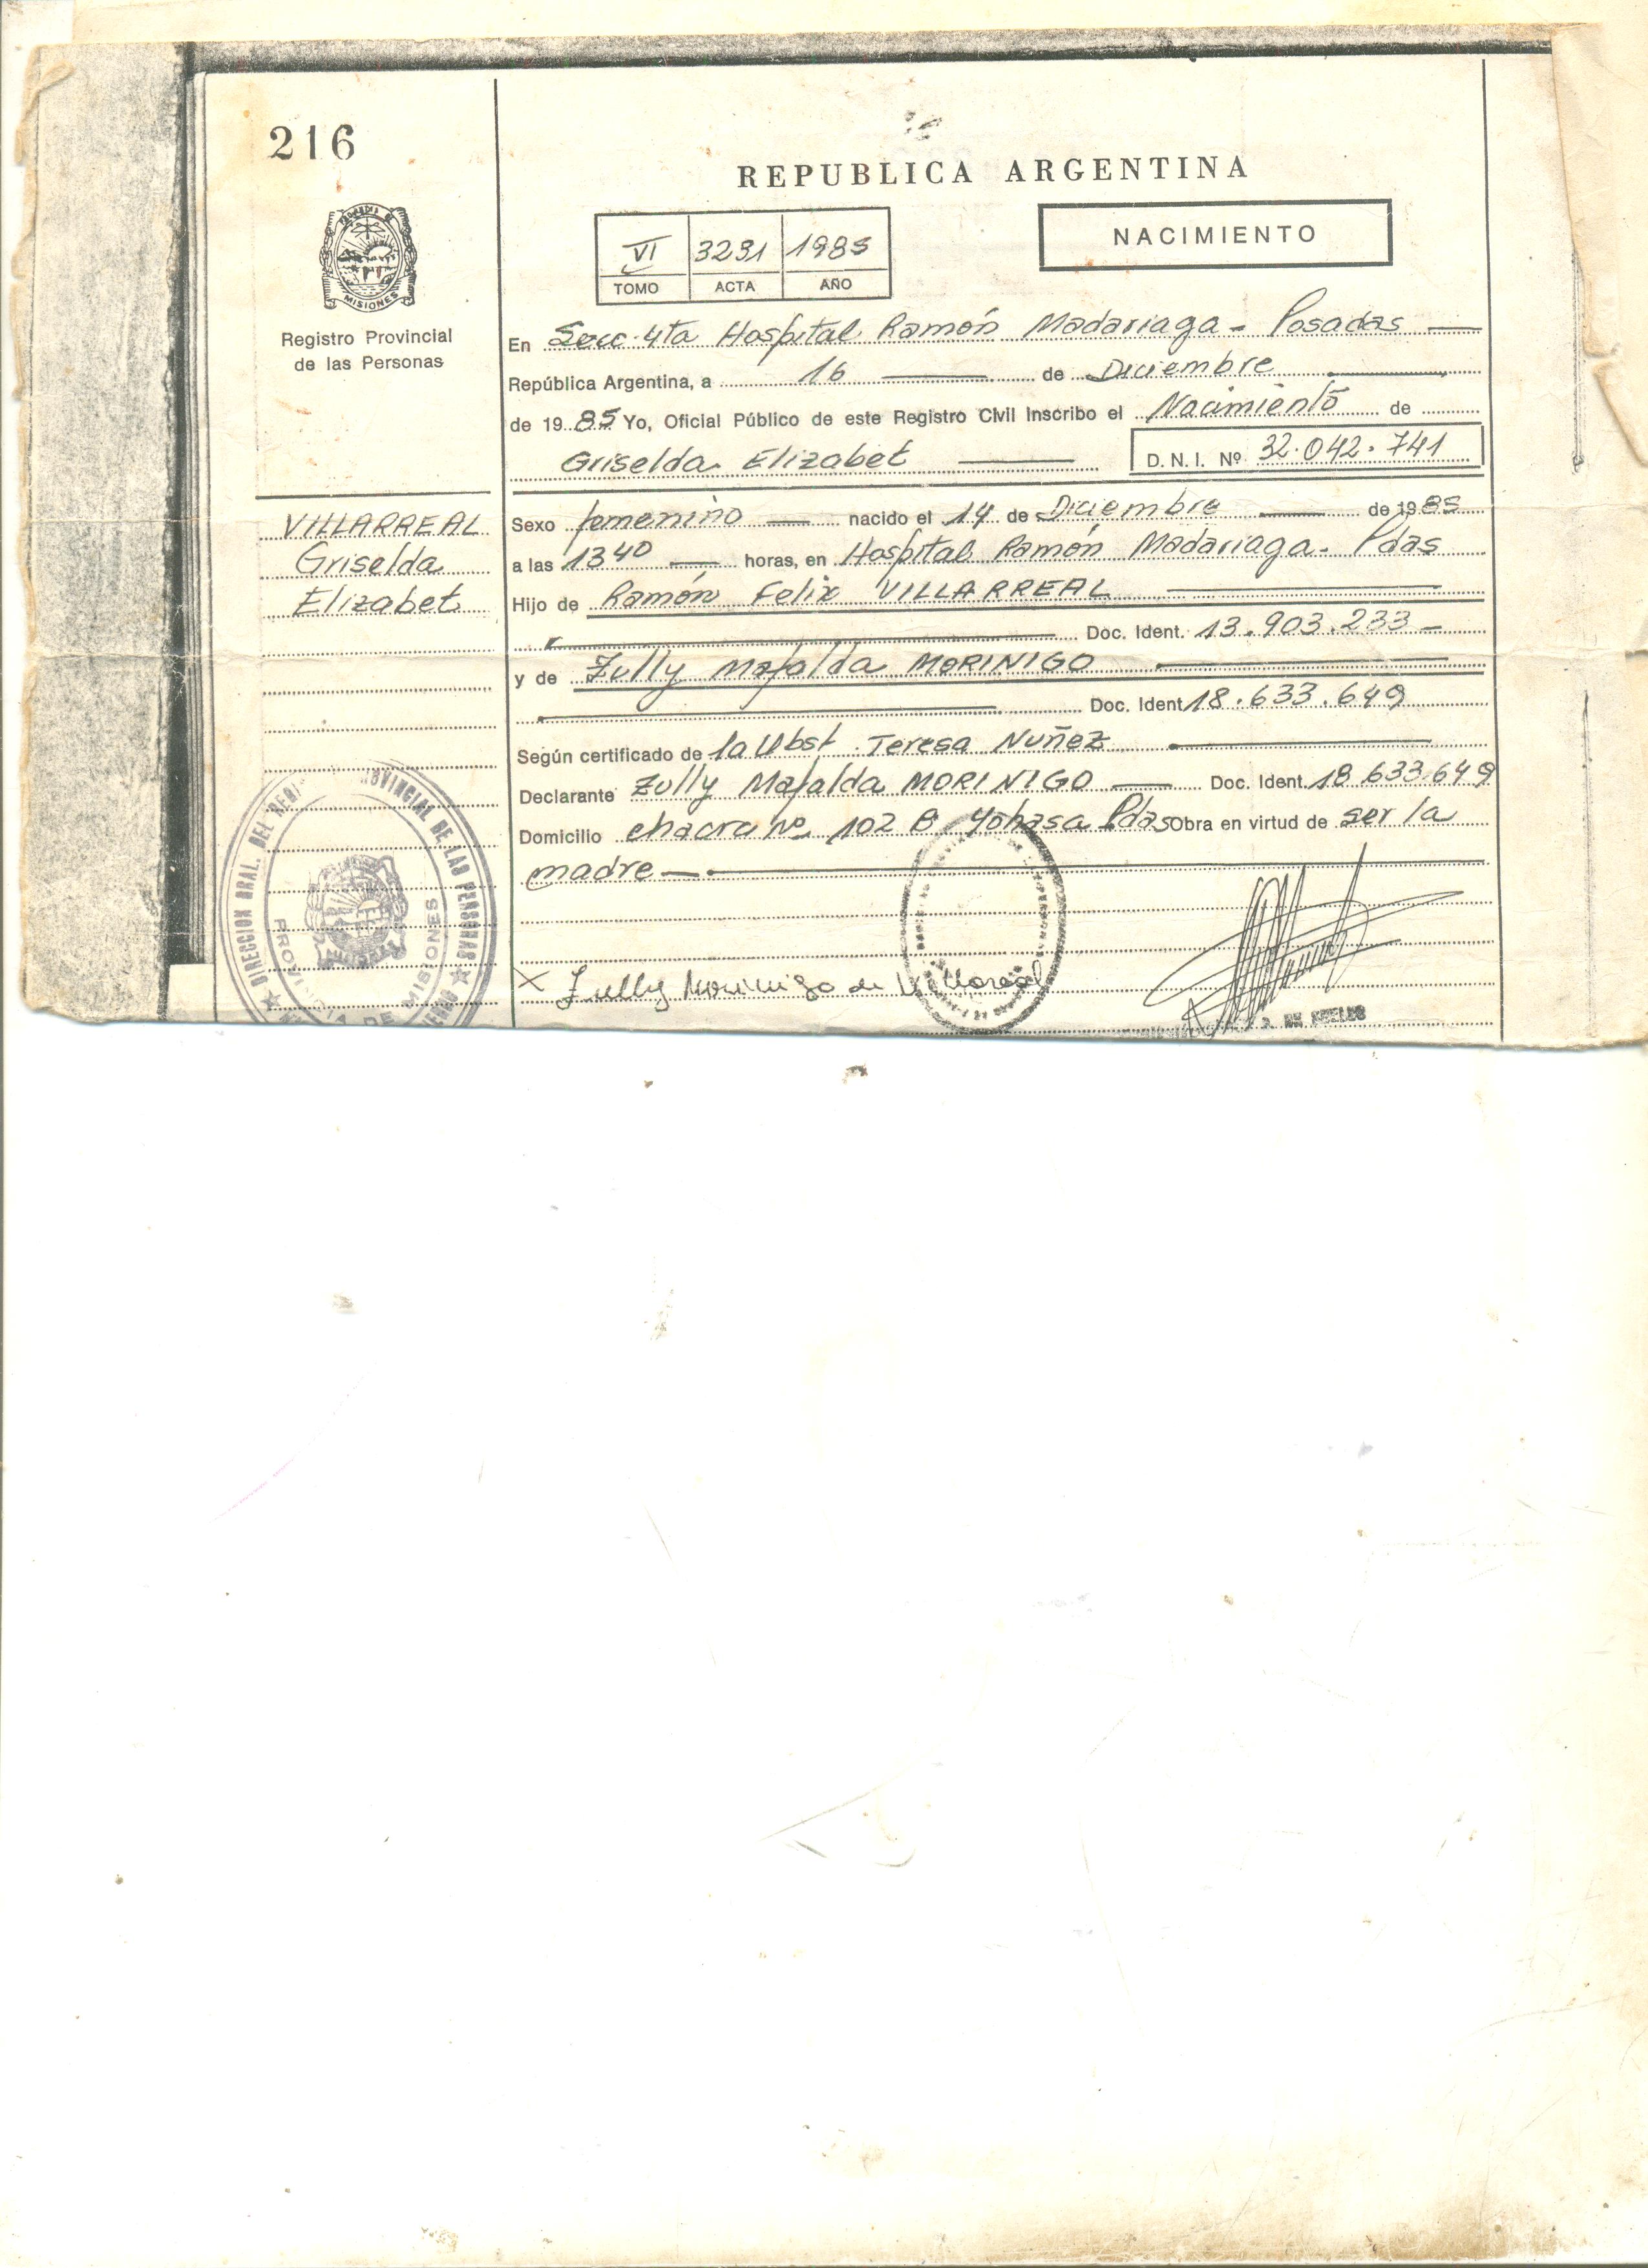 216
REPUBLICA ARGENTINA
VI 3291 1985
TOMO ACTA AÑO
NACIMIENTO
MISIONES
Registro Provincial
de las Personas
En Secc. 4ta Hospital Ramón Madariaga - Posadas
República Argentina, a 16 de Diciembre
de 1985 Yo, Oficial Público de este Registro Civil Inscribo el Nacimiento de
Griselda Elizabet D.N.I. Nº 32.042.741
VILLARREAL
Griselda
Elizabet
Sexo femenino nacido el 14 de Diciembre de 1985
a las 13 40 horas, en Hospital Ramón Madariaga - Pdas
Hijo de Ramón Felix VILLARREAL
Doc. Ident. 13.903.233
y de Zully Mafalda MORINIGO
Doc. Ident. 18.633.649
Según certificado de la Obst. Teresa Nuñez
Declarante Zully Mafalda MORINIGO Doc. Ident. 18.633.649
Domicilio chacra Nº 102 B Pdas Obra en virtud de ser la
madre
DIRECCION GRAL. DEL PROVINCIAL DE LAS PERSONAS
PROVINCIA DE MISIONES
X Zully Morinigo de Villareal